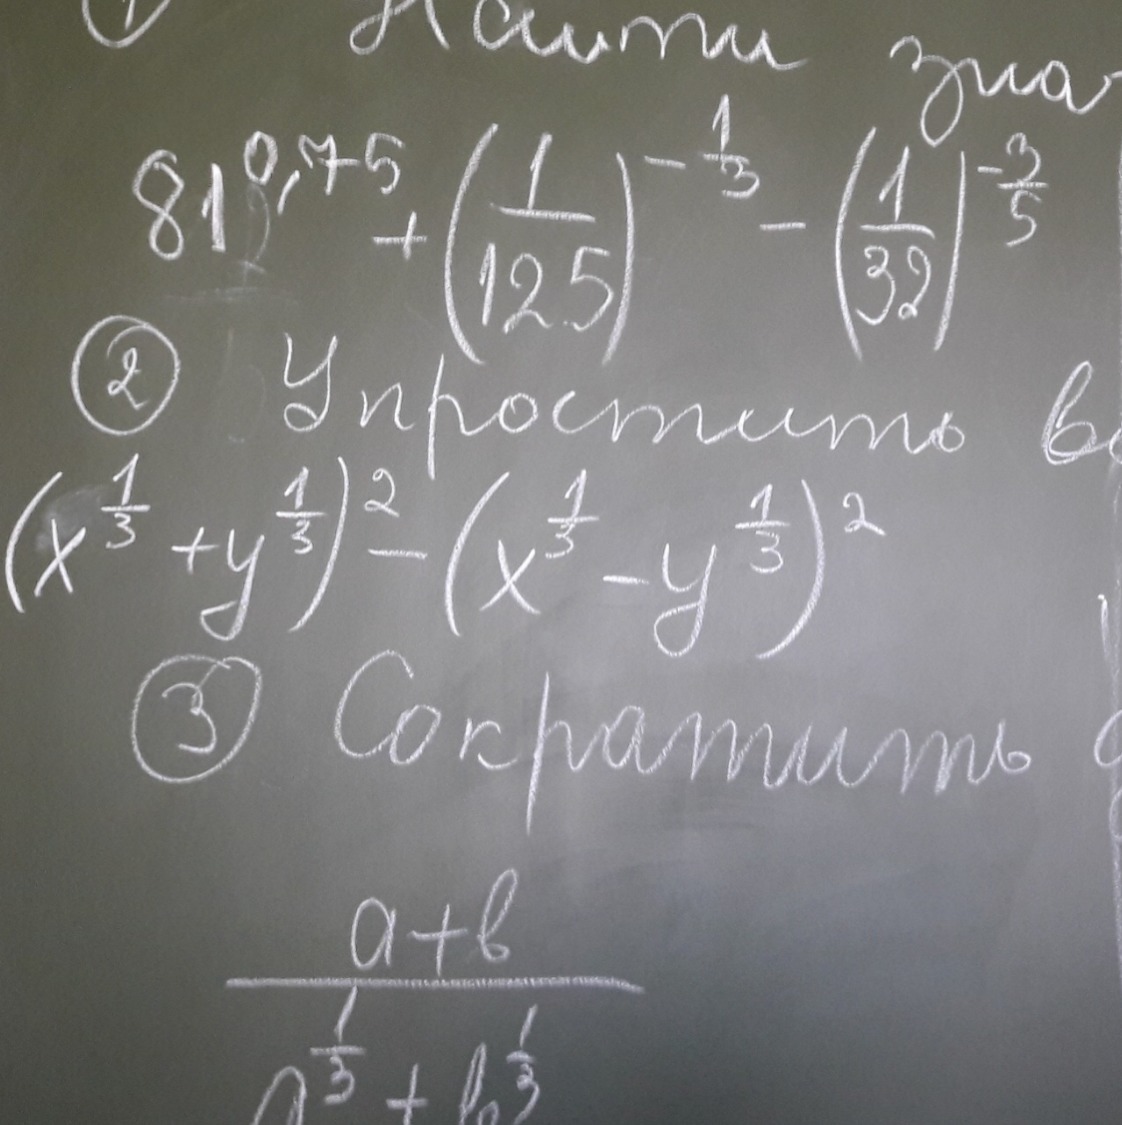 ① Найти зна
81^{0,75} + (1/125)^{-1/3} - (1/32)^{-3/5}
② Упростить в
(x^{1/3} + y^{1/3})^2 - (x^{1/3} - y^{1/3})^2
③ Сократить
a+b
a^{1/3} + b^{1/3}